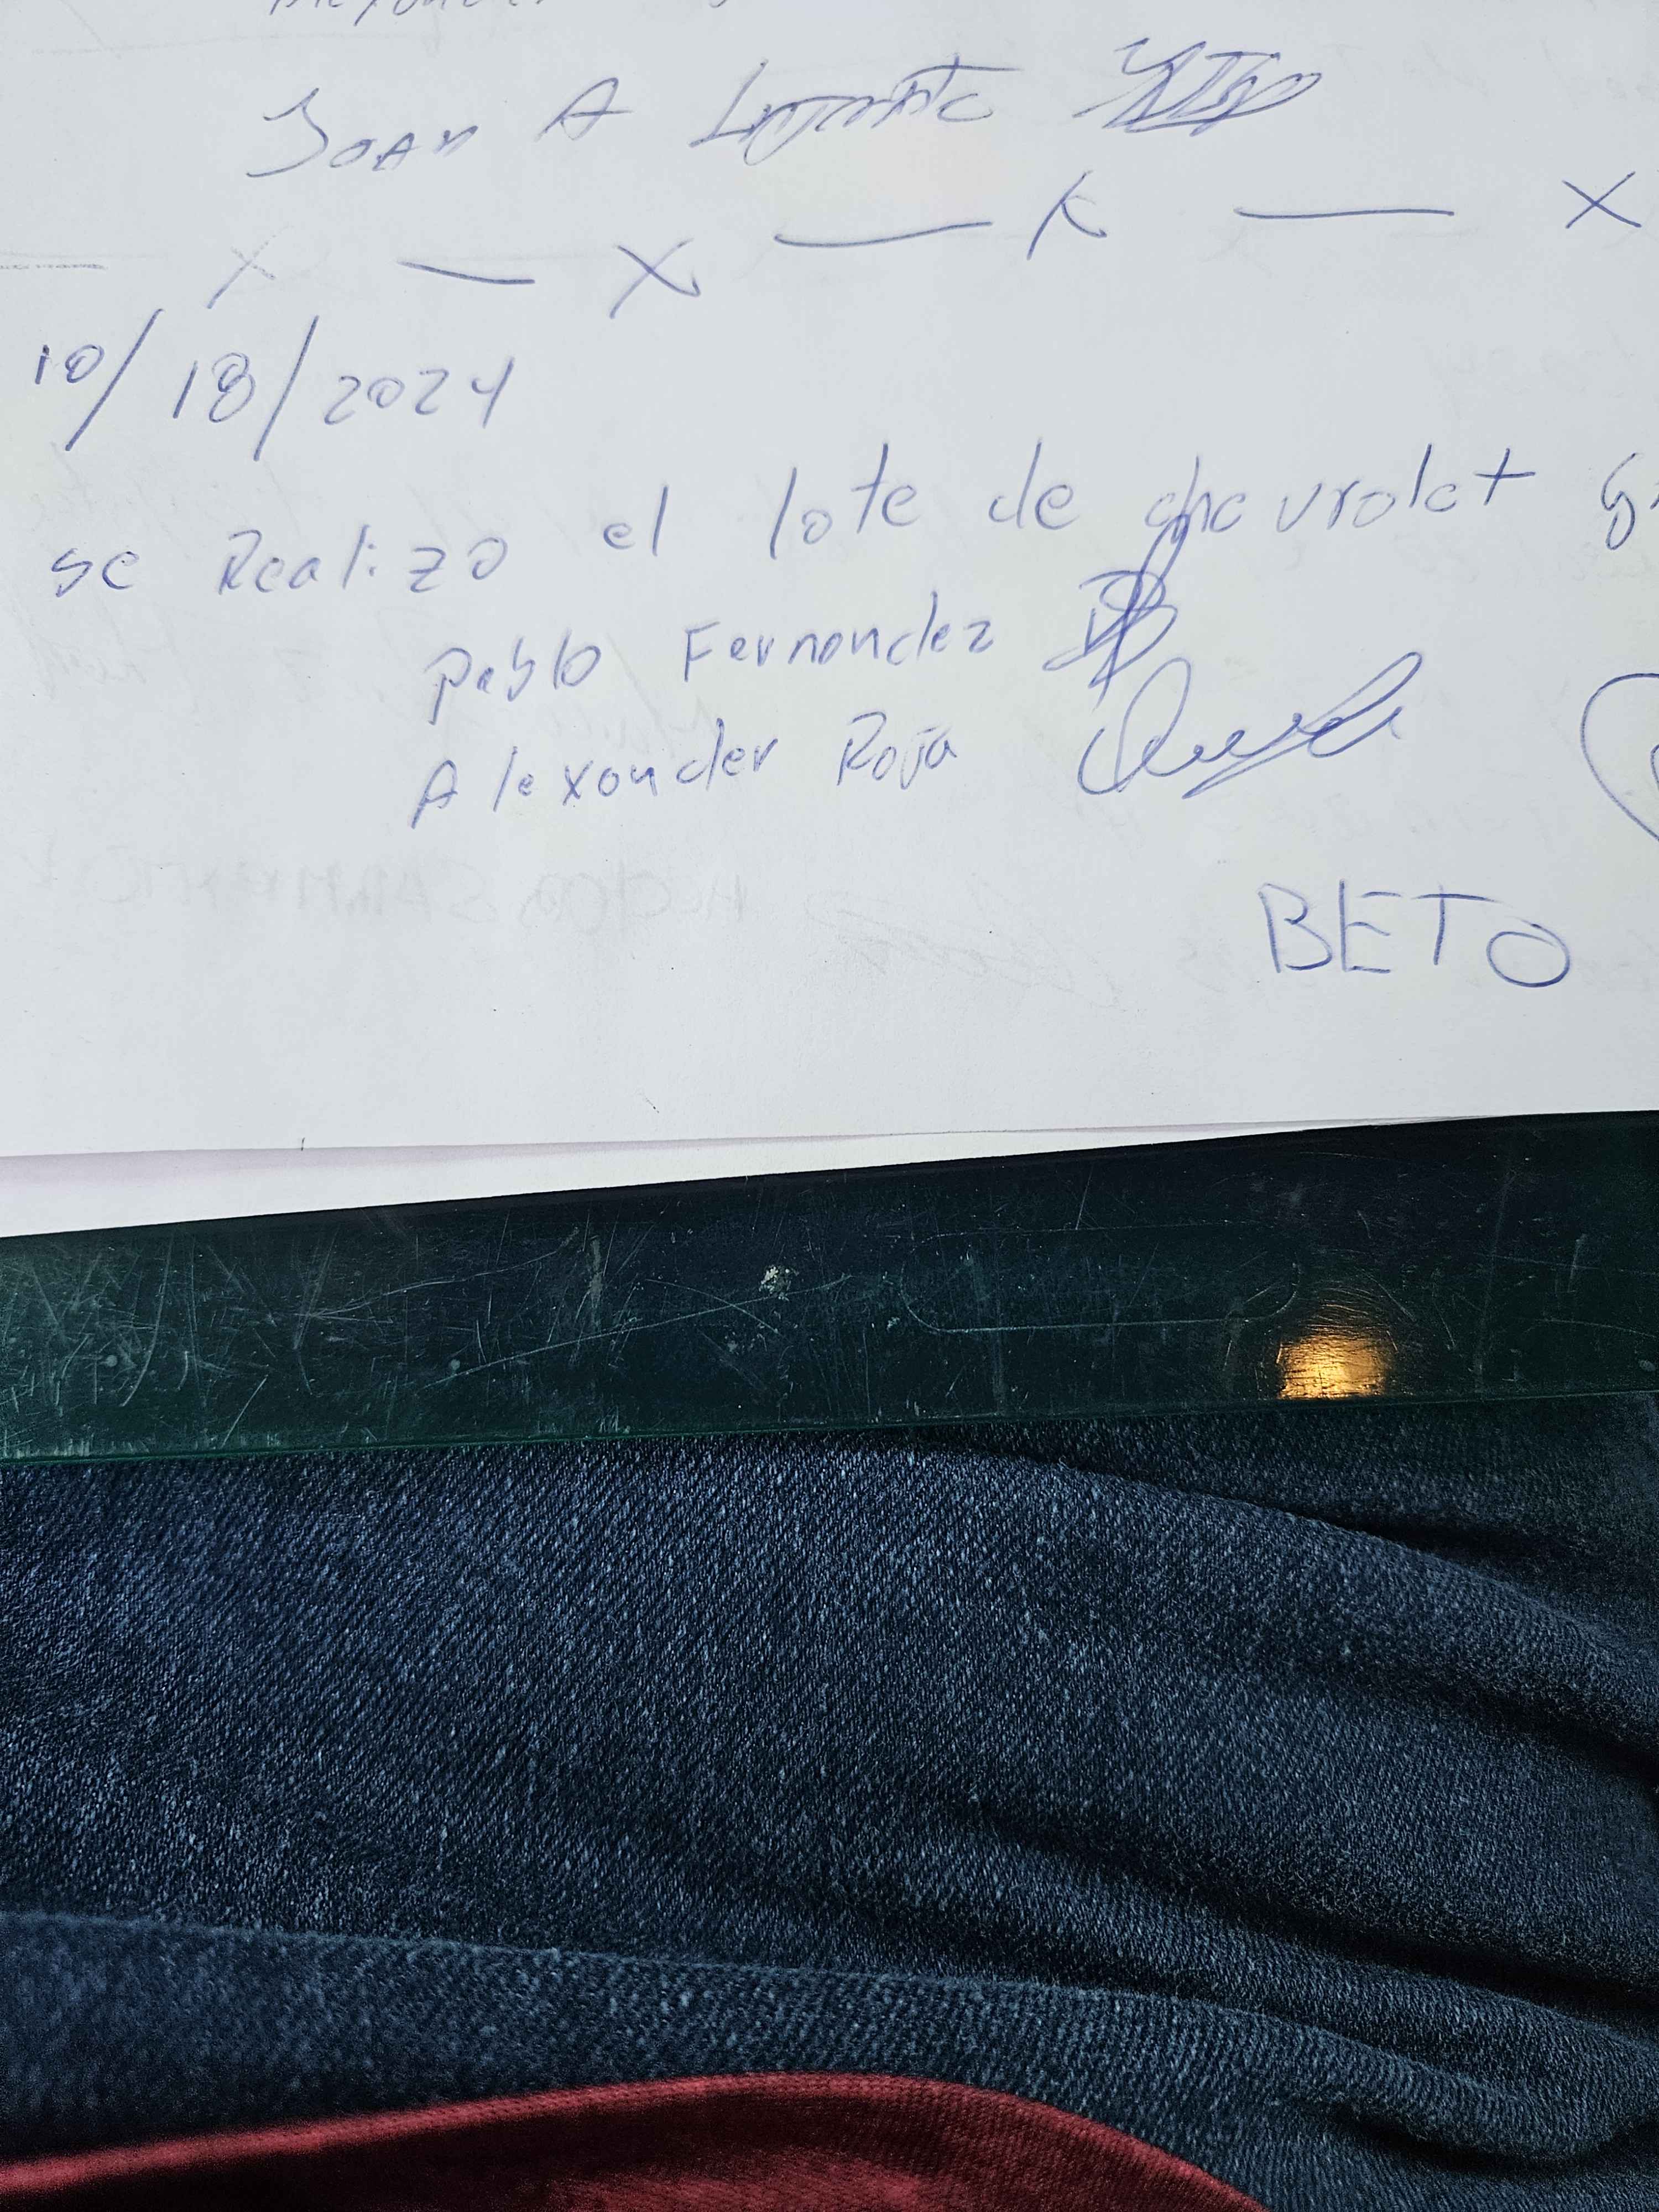 Joan A
— X — X — X — X
10/18/2024
se Realizo el lote de chevrolet
Pablo Fernandez
Alexander Roja
BETO